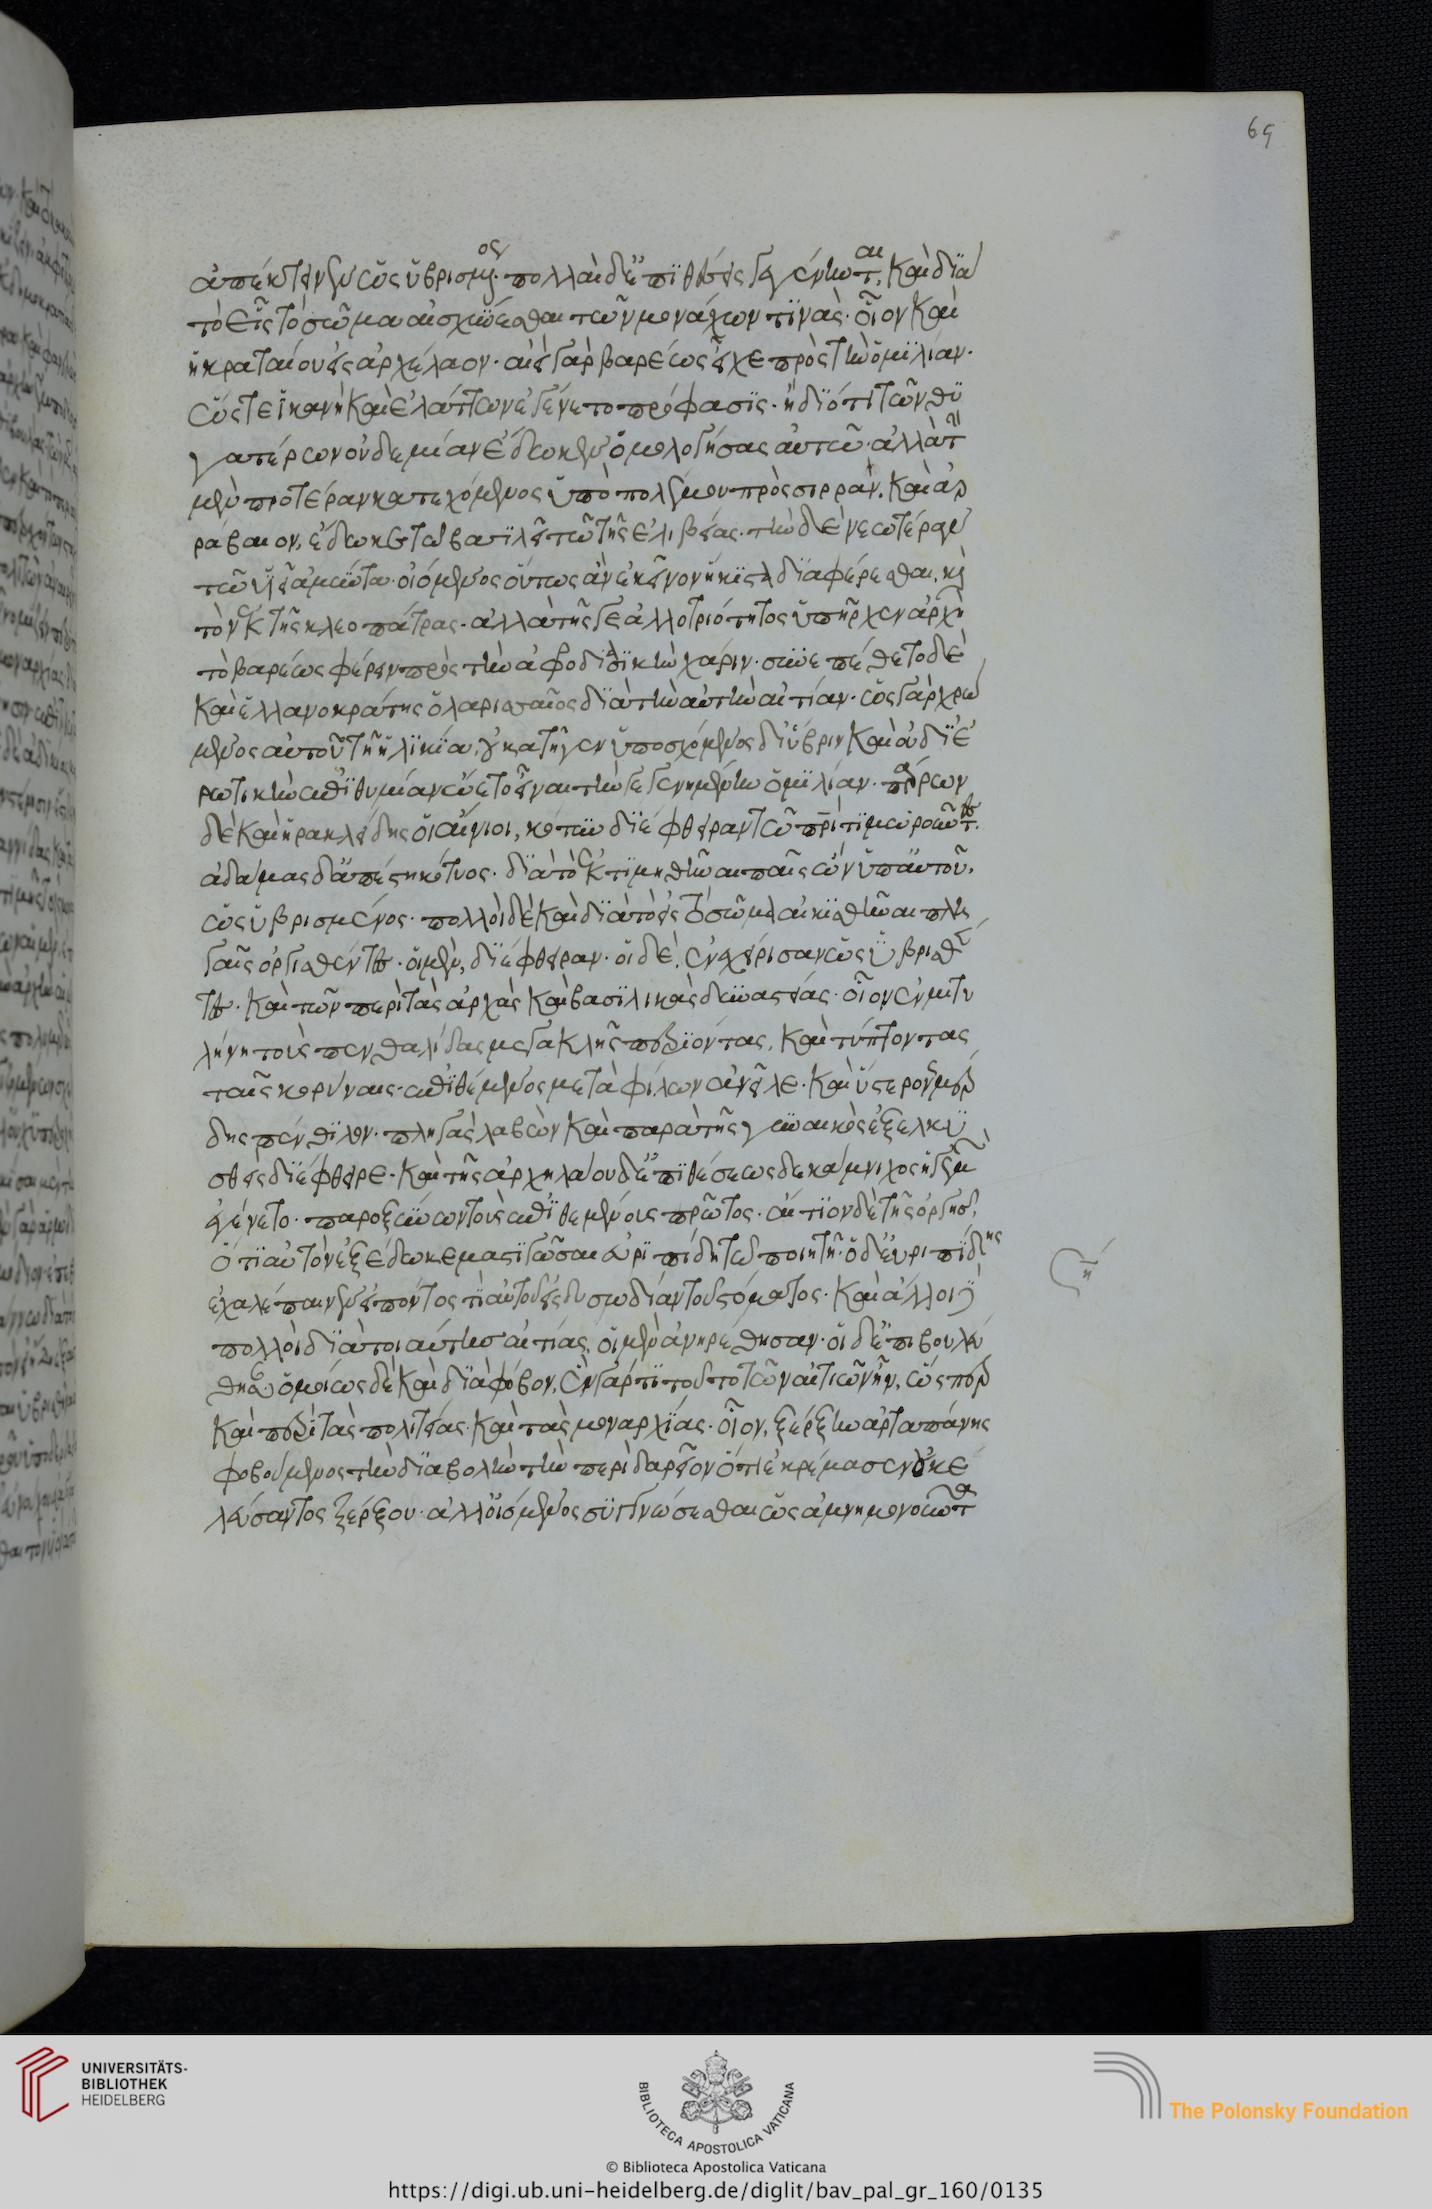 ἀπέκτεινεν ὡς ὑβρισμένος. πολλαὶ δ' ἐπϊθέσεις γεγένηνται, καὶ διὰ
τὸ εἰς τὸ σῶμα αἰσχύνεσθαι τῶν μονάρχων τϊνὰς. οἷον καὶ
ἡ κραταίου εἰς ἀρχέλαον. αἰεὶ γὰρ βαρέως εἶχε πρὸς τὴν ὁμϊλίαν.
ὥστε ἱκανὴ καὶ ἐλάττων ἐγένετο πρόφασϊς. ἢ διότι τῶν θυ
γατέρων οὐδεμίαν ἔδωκεν ὁμολογήσας αὐτῶ. ἀλλὰ τὴν
μὲν προτέραν κατεχόμενος ὑπὸ πολέμου πρὸς σιρρὰν. καὶ ἀρ
ράβαιον, ἔδωκε τῶ βασιλεῖ τῶ τῆς ἐλιβείας. τὴν δὲ νεωτέραν
τῶ ϋἱεῖ ἀμύντα. οἰόμενος οὕτως ἂν ἐκεῖνον ἥκϊστα δϊαφέρεσθαι, καὶ
τὸν ἐκ τῆς κλεοπάτρας. ἀλλὰ τῆς γε ἀλλοτριότητος ὑπῆρχεν ἀρχὴ
τὸ βαρέως φέρειν πρὸς τὴν ἀφροδισϊακὴν χάριν. συνεπέθετο δὲ
καὶ ἑλλανοκράτης ὁ λαρισσαῖος διὰ τὴν αὐτὴν αἰτίαν. ὡς γὰρ χρώ
μενος αὐτοῦ τῆ ἡλϊκία, οὐ κατῆγεν ὑποσχόμενος δι' ὕβριν καὶ οὐ δϊ' ἐ
ρωτικὴν ἐπϊθυμίαν ὤετο εἶναι τὴν γεγενημένην ὁμϊλίαν. πάρων
δὲ καὶ ἡρακλείδης οἱ αἴνιοι, κότυν διέφθειραν τῶ πρὶ τϊμωροῦντες.
ἀδάμας δ' ἀπέστη κότυος. δϊὰ τὸ ἐκτιμηθῆναι παῖς ὢν ὑπ' αὐτοῦ,
ὡς ὑβρισμένος. πολλοὶ δὲ καὶ δϊὰ τὸ εἰς τὸ σῶμα αἰκϊσθῆναι πλη
γαῖς ὀργισθέντες. οἱ μὲν, δϊέφθειραν. οἱ δὲ, ἐνεχείρισαν ὡς ὑβρισθέν
τες. καὶ τῶν περὶ τὰς ἀρχὰς καὶ βασϊλικὰς δυναστείας. οἷον ἐν μιτυ
λήνη τοὺς πενθαλίδας μεγακλῆς περϊϊόντας, καὶ τύπτοντας
ταῖς κορύναις. ἐπϊθέμενος μετὰ φίλων ἀνεῖλε. καὶ ὕστερον σμέρ
δης πενθϊλον. πληγὰς λαβὼν καὶ παρὰ τῆς γυναικὸς ἐξελκυ
σθεὶς διέφθειρε. καὶ τῆς ἀρχηλάου δ' ἐπϊθέσεως δεκάμνιχος ἡγεμὼν
ἐγένετο. παροξύνων τοὺς ἐπϊθεμένους πρῶτος. αἴτϊον δὲ τῆς ὀργῆς,
ὅτϊ αὐτὸν ἐξέδωκε μαστϊγῶσαι εὐρϊπίδη τῶ ποιητῆ. ὁ δ' εὐριπίδης
ἐχαλέπαινεν εἰπόντος τϊ αὐτοῦ εἰς δυσωδίαν τοῦ στόματος. καὶ ἄλλοι δὲ
πολλοὶ δϊὰ τοιαύτας αἰτίας, οἱ μὲν ἀνηρέθησαν. οἱ δ' ἐπιβουλεύ
θησαν ὁμοίως δὲ καὶ δϊὰ φόβον. ἓν γάρ τϊ τοῦτο τῶν αἰτιῶν ἦν, ὥσπερ
καὶ περὶ τὰς πολιτείας. καὶ τὰς μοναρχίας. οἷον, ξέρξην ἀρταπάνης
φοβούμενος τὴν διαβολὴν τὴν περὶ δαρεῖον ὅτι ἐκρέμασεν οὐ κε
λεύσαντος ξέρξου. ἀλλ' οἰόμενος συγγνώσεσθαι ὡς ἀμνημονοῦντα
69
© Biblioteca Apostolica Vaticana
UNIVERSITÄTS-
BIBLIOTHEK
HEIDELBERG
BIBLIOTECA APOSTOLICA VATICANA
The Polonsky Foundation
https://digi.ub.uni-heidelberg.de/diglit/bav_pal_gr_160/0135